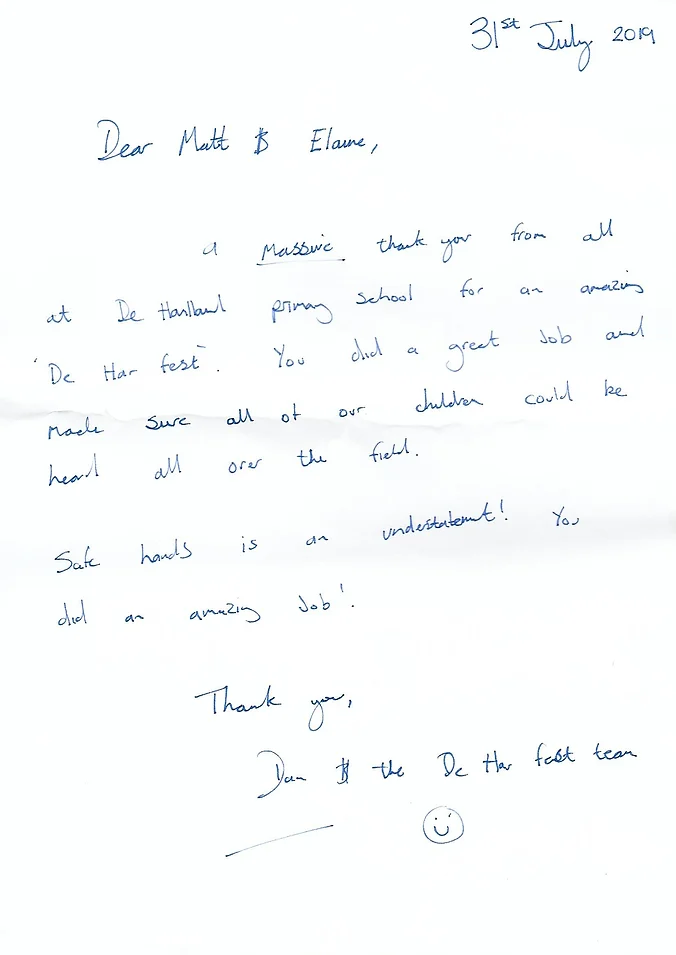 31st July 2019
Dear Matt & Elaine,
A Massive thank you from all
at De Havilland primary school for an amazing
'De Hav fest'. You did a great Job and
made sure all of our children could be
heard all over the field.
Safe hands is an understatement! You
did an amazing Job!.
Thank you,
Dan & the De Hav fest team